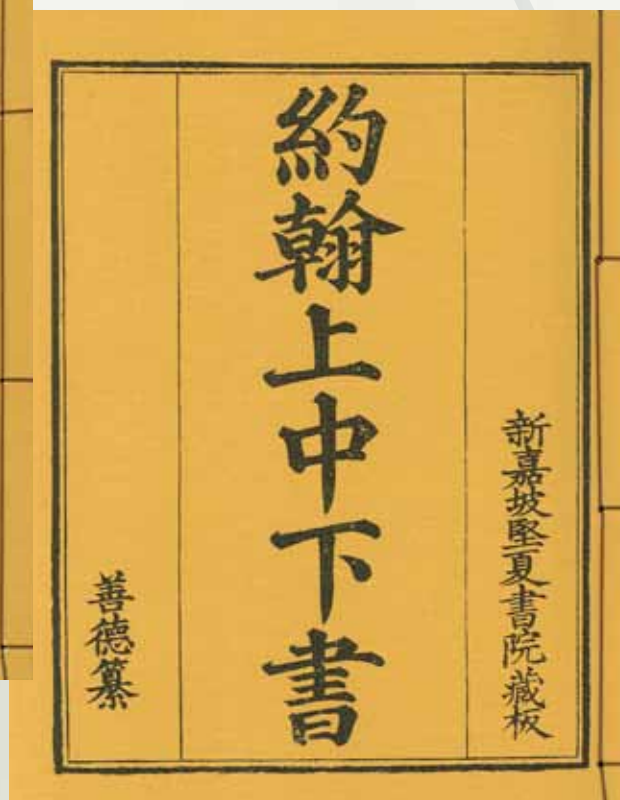 新嘉坡堅夏書院藏板
約翰上中下書
善德纂